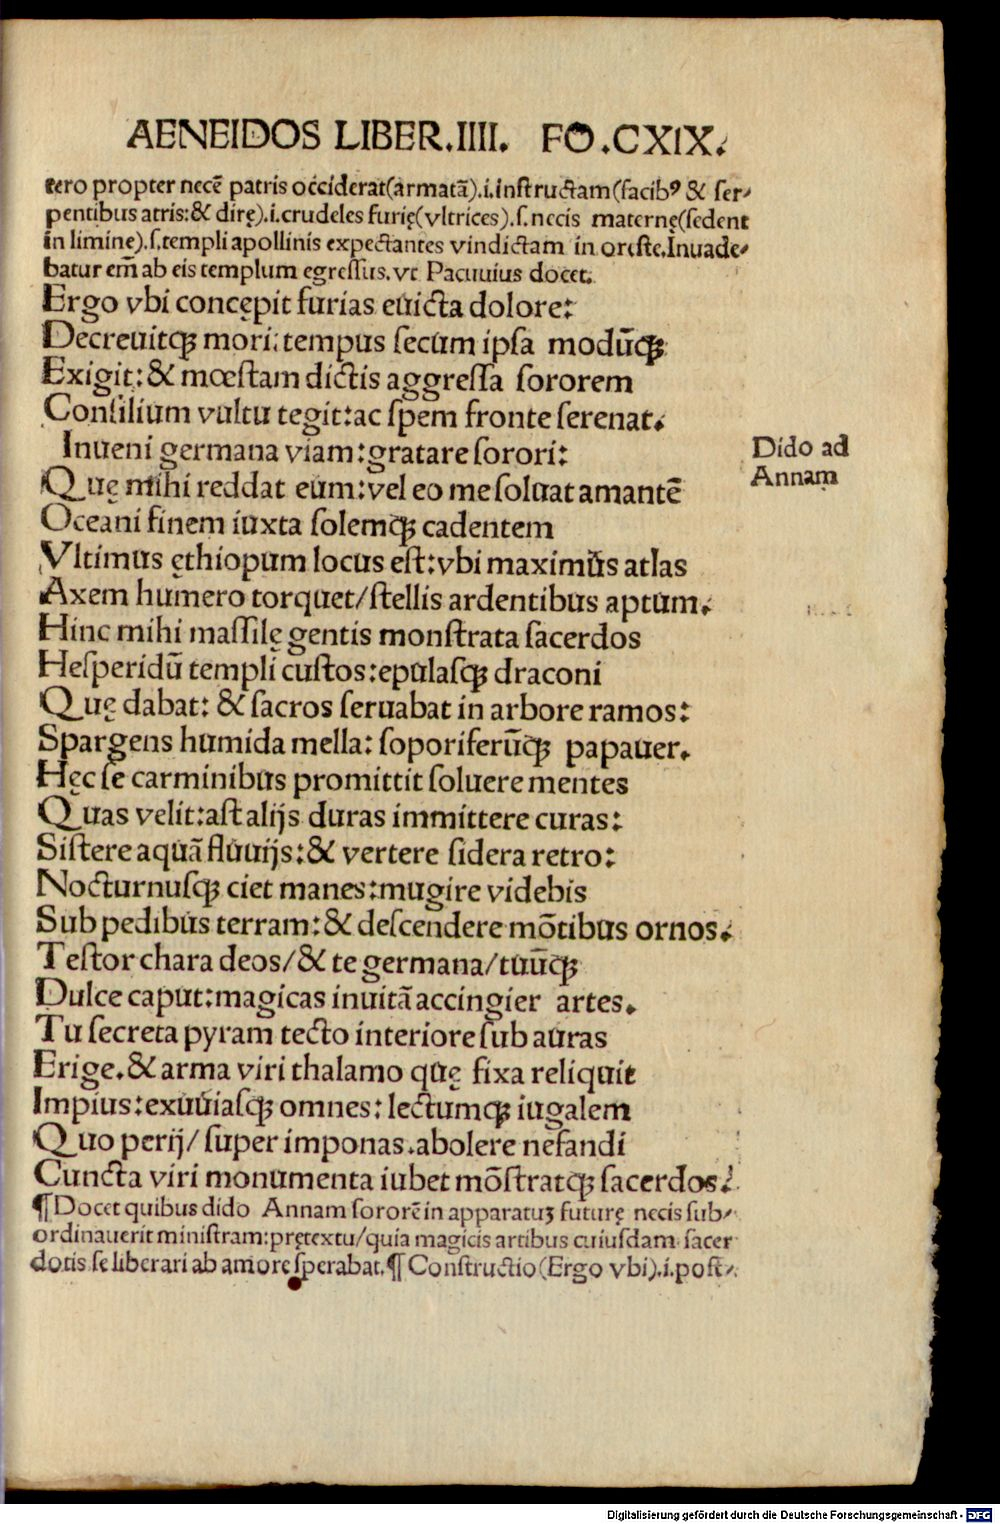 AENEIDOS LIBER.IIII. FO.CXIX.
tero propter necē patris occiderat(armatā).i.instructam(facibꝰ & ser-
pentibus atris:& dirę).i.crudeles furię(vltrices).s.necis maternę(sedent
in limine).s.templi apollinis expectantes vindictam in oreste.Inuade-
batur em̄ ab eis templum egressus.vt Pacuuius docet.
Ergo vbi concępit furias euicta dolore:
Decreuitqꝫ mori:tempus secum ipsa modūqꝫ
Exigit:& mœstam dictis aggressa sororem
Consilium vultu tegit:ac spem fronte serenat.
Inueni germana viam:gratare sorori:
Quę mihi reddat eum:vel eo me soluat amantē
Oceani finem iuxta solemqꝫ cadentem
Vltimus ęthiopum locus est:vbi maximus atlas
Axem humero torquet/stellis ardentibus aptum.
Hinc mihi massilę gentis monstrata sacerdos
Hesperidū templi custos:epulasqꝫ draconi
Quę dabat: & sacros seruabat in arbore ramos:
Spargens humida mella: soporiferūqꝫ papauer.
Hęc se carminibus promittit soluere mentes
Quas velit:ast alijs duras immittere curas:
Sistere aquā fluuijs:& vertere sidera retro:
Nocturnusqꝫ ciet manes:mugire videbis
Sub pedibus terram:& descendere mōtibus ornos.
Testor chara deos/& te germana/tuūqꝫ
Dulce caput:magicas inuitā accingier artes.
Tu secreta pyram tecto interiore sub auras
Erige.& arma viri thalamo quę fixa reliquit
Impius:exuuiasqꝫ omnes: lectumqꝫ iugalem
Quo perij/ super imponas.abolere nefandi
Cuncta viri monumenta iubet mōstratqꝫ sacerdos.
¶Docet quibus dido Annam sororē in apparatuꝫ futurę necis sub-
ordinauerit ministram:prętextu/quia magicis artibus cuiusdam sacer
dotis se liberari ab amore sperabat.¶ Constructio(Ergo vbi).i.post-
Dido ad
Annam
Digitalisierung gefördert durch die Deutsche Forschungsgemeinschaft - DFG